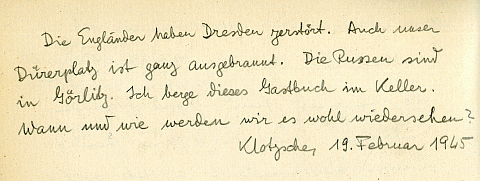 Die Engländer haben Dresden zerstört. Auch unser
Dürerplatz ist ganz ausgebrannt. Die Russen sind
in Görlitz. Ich berge dieses Gastbuch im Keller.
Wann und wie werden wir es wohl wiedersehen?
Klotzsche, 19. Februar 1945